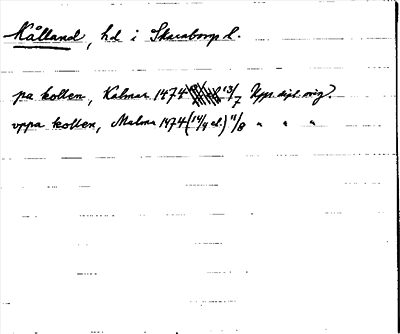 Kålland, hd i Skaraborgs l.
pa kollen, Kalmar 1474 13/7 Upps. dipl. orig.
vppa kollen, Malma 1474 (14/4 el.) 11/8 " " "